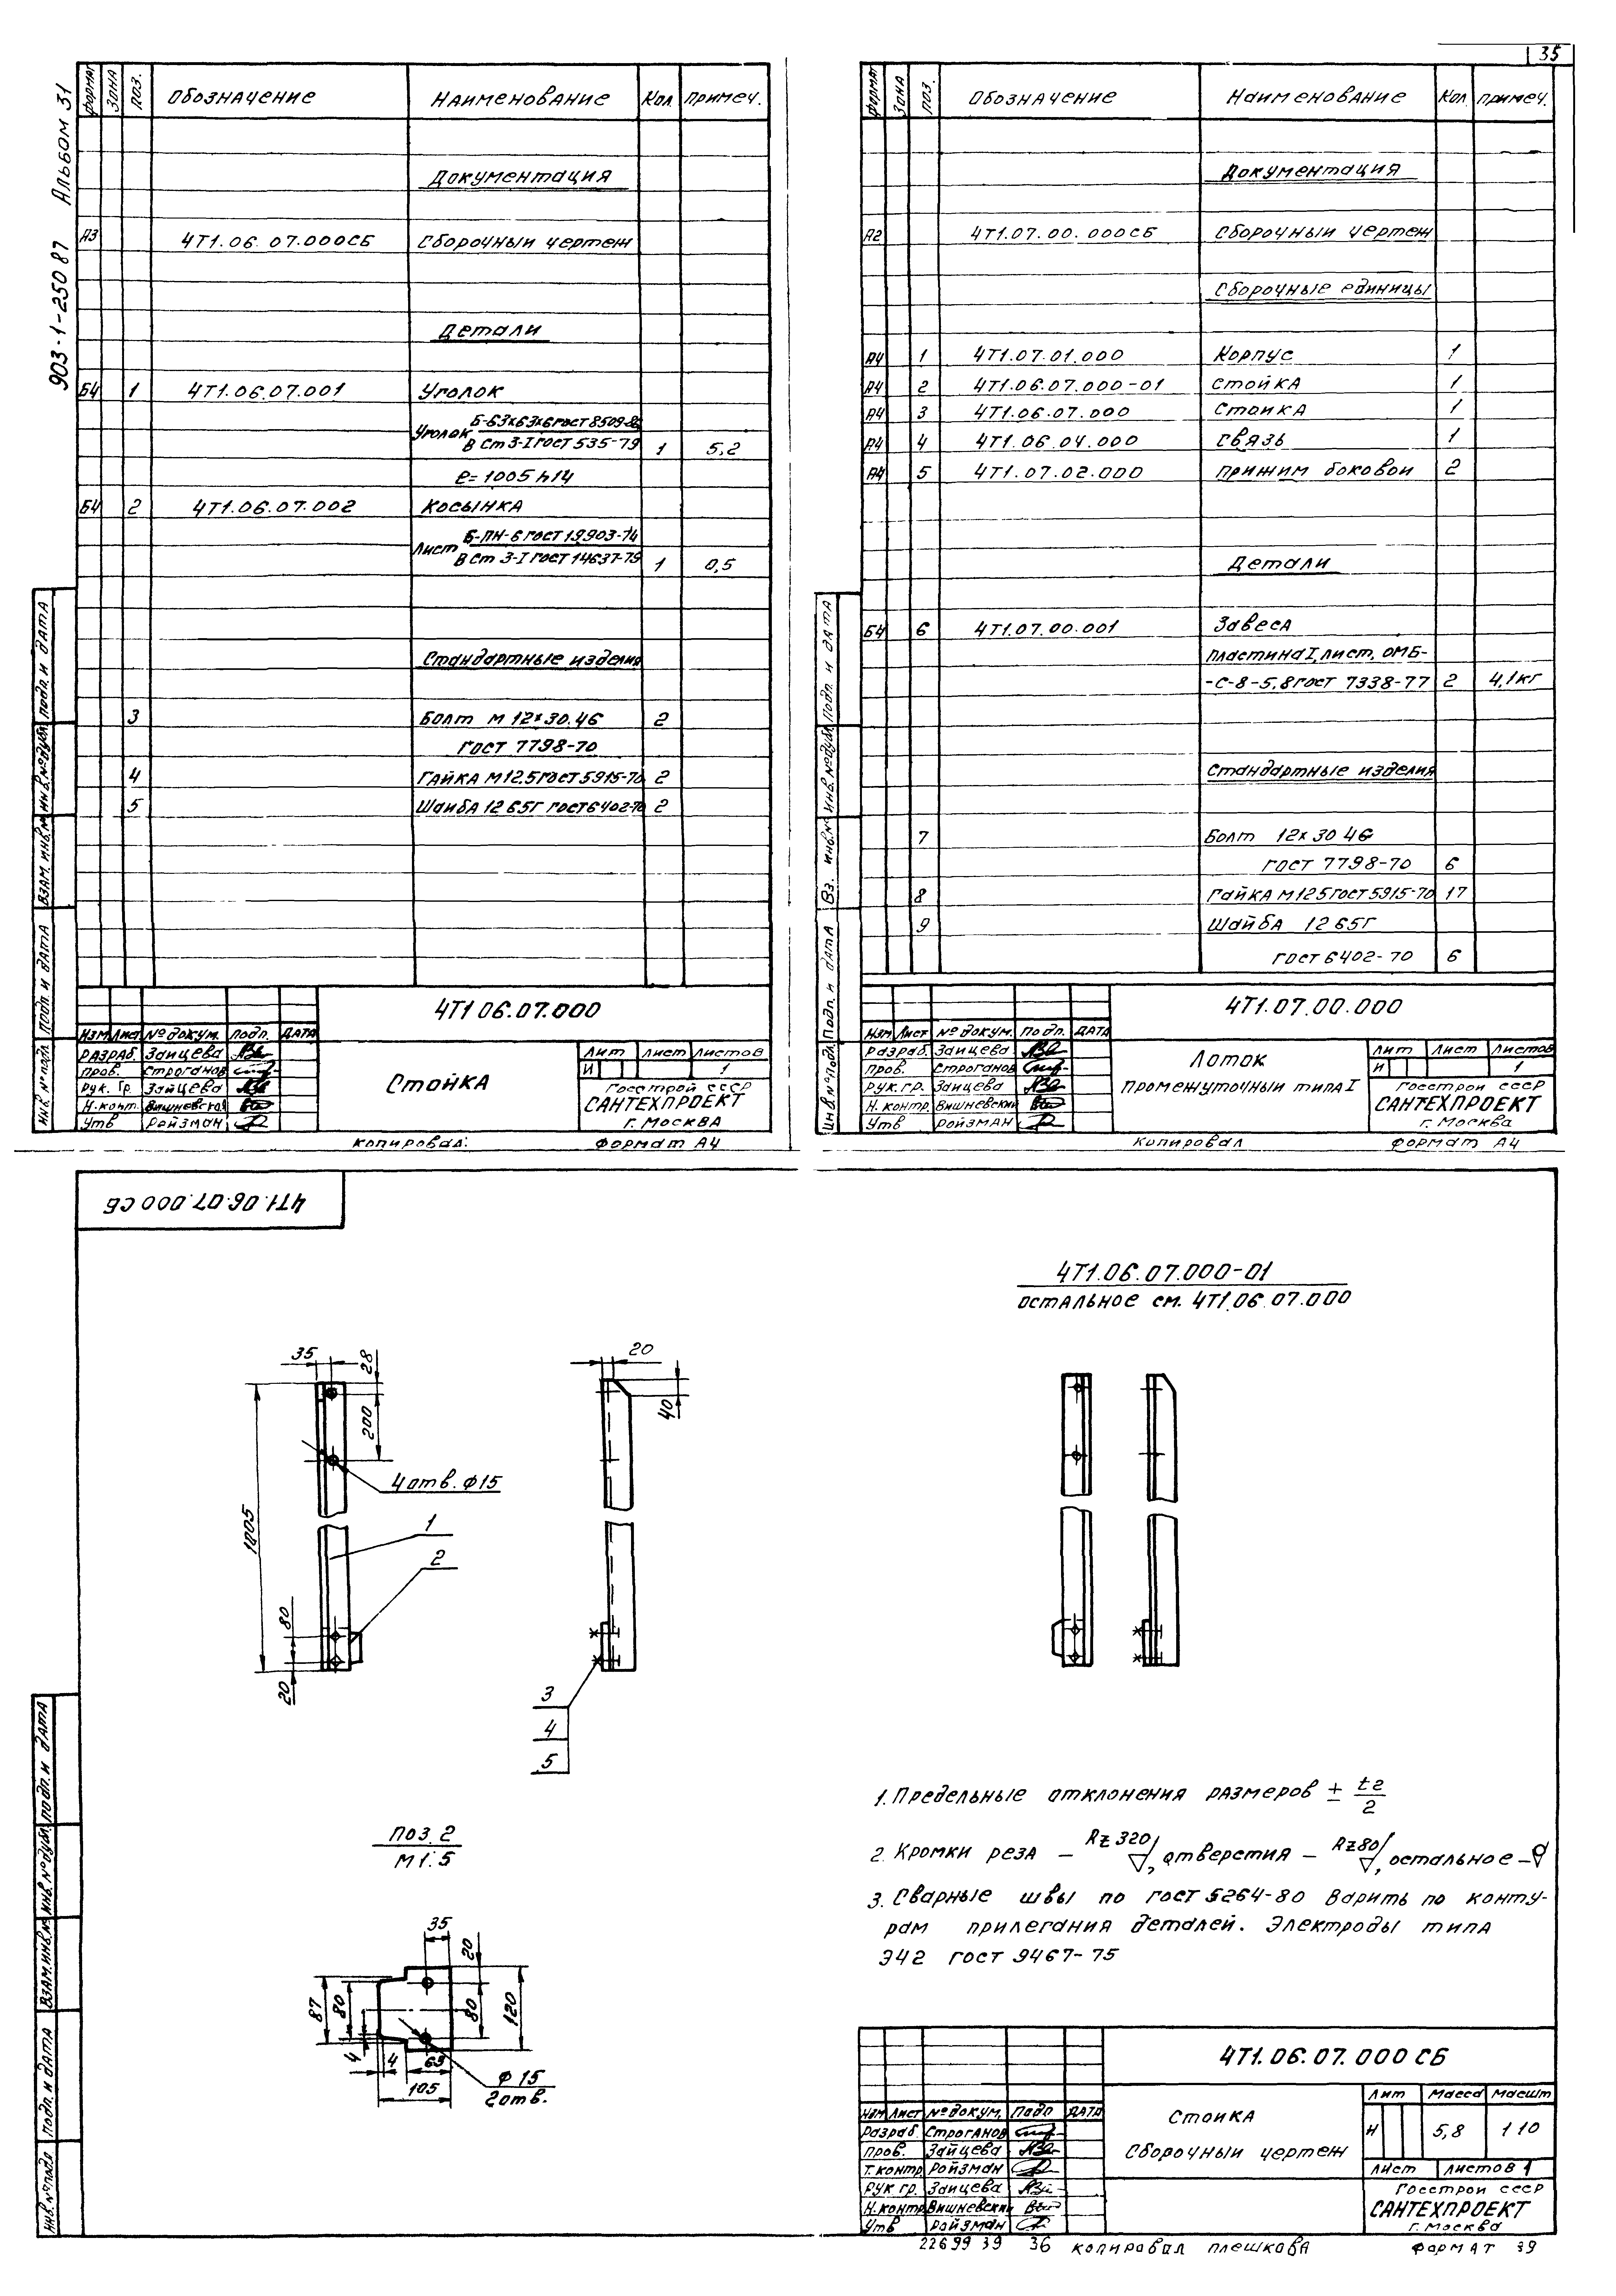 35
903-1-250 87 Альбом 31
формат Зона Поз. Обозначение Наименование Кол примеч.
Документация
А3 4Т1.06.07.000СБ Сборочный чертеж
Детали
Б4 1 4Т1.06.07.001 Уголок
Уголок Б-63х63х6 ГОСТ 8509-86
В Ст 3-I ГОСТ 535-79 1 5,2
е=1005 h14
Б4 2 4Т1.06.07.002 Косынка
Лист Б-ПН-6 ГОСТ 19903-74
В Ст 3-I ГОСТ 14637-79 1 0,5
Стандартные изделия
3 Болт М 12х30.46 2
ГОСТ 7798-70
4 Гайка М12.5 ГОСТ 5915-70 2
5 Шайба 12 65Г ГОСТ 6402-70 2
Инв.№ подл. Подп. и дата Взам. инв.№ Инв.№ дубл. Подп. и дата
4Т1 06.07.000
Изм Лист № докум. Подп. Дата
Разраб. Зайцева
Пров. Строганов
Рук. гр. Зайцева
Н.конт. Вишневский
Утв Ройзман
Стойка
Лит Лист Листов
И 1
Госстрой СССР
САНТЕХПРОЕКТ
г. Москва
Копировал: Формат А4
формат Зона Поз. Обозначение Наименование Кол. примеч.
Документация
А2 4Т1.07.00.000СБ Сборочный чертеж
Сборочные единицы
А4 1 4Т1.07.01.000 Корпус 1
А4 2 4Т1.06.07.000-01 Стойка 1
А4 3 4Т1.06.07.000 Стойка 1
А4 4 4Т1.06.04.000 Связь 1
А4 5 4Т1.07.02.000 Прижим боковой 2
Детали
Б4 6 4Т1.07.00.001 Завеса
Пластина I, лист, ОМБ-
-С-8-5,8 ГОСТ 7338-77 2 4,1кг
Стандартные изделия
7 Болт 12х30 46
ГОСТ 7798-70 6
8 Гайка М12 5 ГОСТ 5915-70 17
9 Шайба 12 65Г
ГОСТ 6402-70 6
Инв.№ подл. Подп. и дата Вз. инв.№ Инв.№ дубл. Подп. и дата
4Т1.07.00.000
Изм Лист № докум. Подп. Дата
Разраб. Зайцева
Пров. Строганов
Рук.гр. Зайцева
Н. контр. Вишневский
Утв Ройзман
Лоток
промежуточный типа I
Лит Лист Листов
И 1
Госстрой СССР
САНТЕХПРОЕКТ
г. Москва
Копировал Формат А4
4Т1.06.07.000 СБ
4Т1.06.07.000-01
Остальное см. 4Т1.06.07.000
35 28 20
200 40
4 отв. Ф15
1005
1
2
80
20
3
4
5
Поз. 2
М 1:5
35 20
87 80 80 120
4 4 63
105
Ф 15
2 отв.
1. Предельные отклонения размеров ± t2/2
2. Кромки реза – Rz 320, отверстия – Rz 80, остальное –
3. Сварные швы по ГОСТ 5264-80 Варить по конту-
рам прилегания деталей. Электроды типа
Э42 ГОСТ 9467-75
Инв.№ подл Подп. и дата Взам.инв.№ Инв.№ дубл. Подп. и дата
4Т1.06.07.000 СБ
Изм Лист № докум. Подп Дата
Разраб. Строганов
Пров. Зайцева
Т. контр. Ройзман
Рук гр. Зайцева
Н.контр Вишневский
Утв Ройзман
Стойка
Сборочный чертеж
Лит Масса Масшт
И 5,8 1 10
Лист Листов 1
Госстрой СССР
САНТЕХПРОЕКТ
г. Москва
22699 39 36 Копировал Плешкова Формат